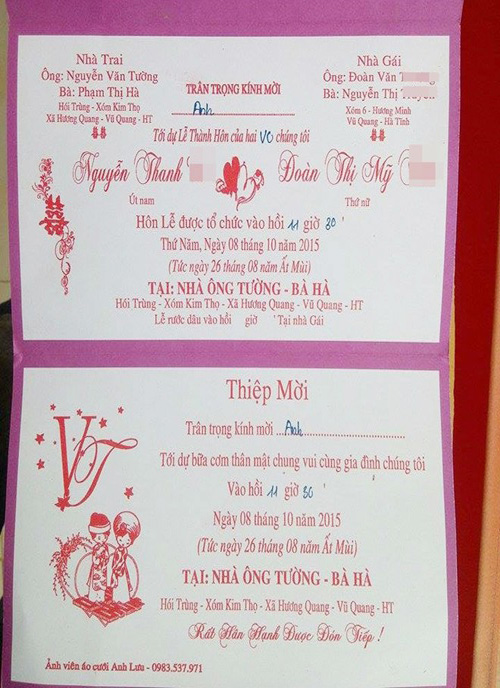 Nhà Trai
Ông: Nguyễn Văn Tường
Bà: Phạm Thị Hà
Hói Trùng - Xóm Kim Thọ
Xã Hương Quang - Vũ Quang - HT
TRÂN TRỌNG KÍNH MỜI
Anh
Nhà Gái
Ông: Đoàn Văn
Bà: Nguyễn Thị
Xóm 6 - Hương Minh
Vũ Quang - Hà Tĩnh
Tới dự Lễ Thành Hôn của hai VC chúng tôi
Nguyễn Thanh
Đoàn Thị Mỹ
Út nam
Thứ nữ
Hôn Lễ được tổ chức vào hồi 11 giờ 30'
Thứ Năm, Ngày 08 tháng 10 năm 2015
(Tức ngày 26 tháng 08 năm Ất Mùi)
TẠI: NHÀ ÔNG TƯỜNG - BÀ HÀ
Hói Trùng - Xóm Kim Thọ - Xã Hương Quang - Vũ Quang - HT
Lễ rước dâu vào hồi giờ ' Tại nhà Gái
Thiệp Mời
Trân trọng kính mời ...Anh...
Tới dự bữa cơm thân mật chung vui cùng gia đình chúng tôi
Vào hồi 11 giờ 30'
Ngày 08 tháng 10 năm 2015
(Tức ngày 26 tháng 08 năm Ất Mùi)
TẠI: NHÀ ÔNG TƯỜNG - BÀ HÀ
Hói Trùng - Xóm Kim Thọ - Xã Hương Quang - Vũ Quang - HT
Rất Hân Hạnh Được Đón Tiếp !
VT
Ảnh viện áo cưới Anh Lưu - 0983.537.971